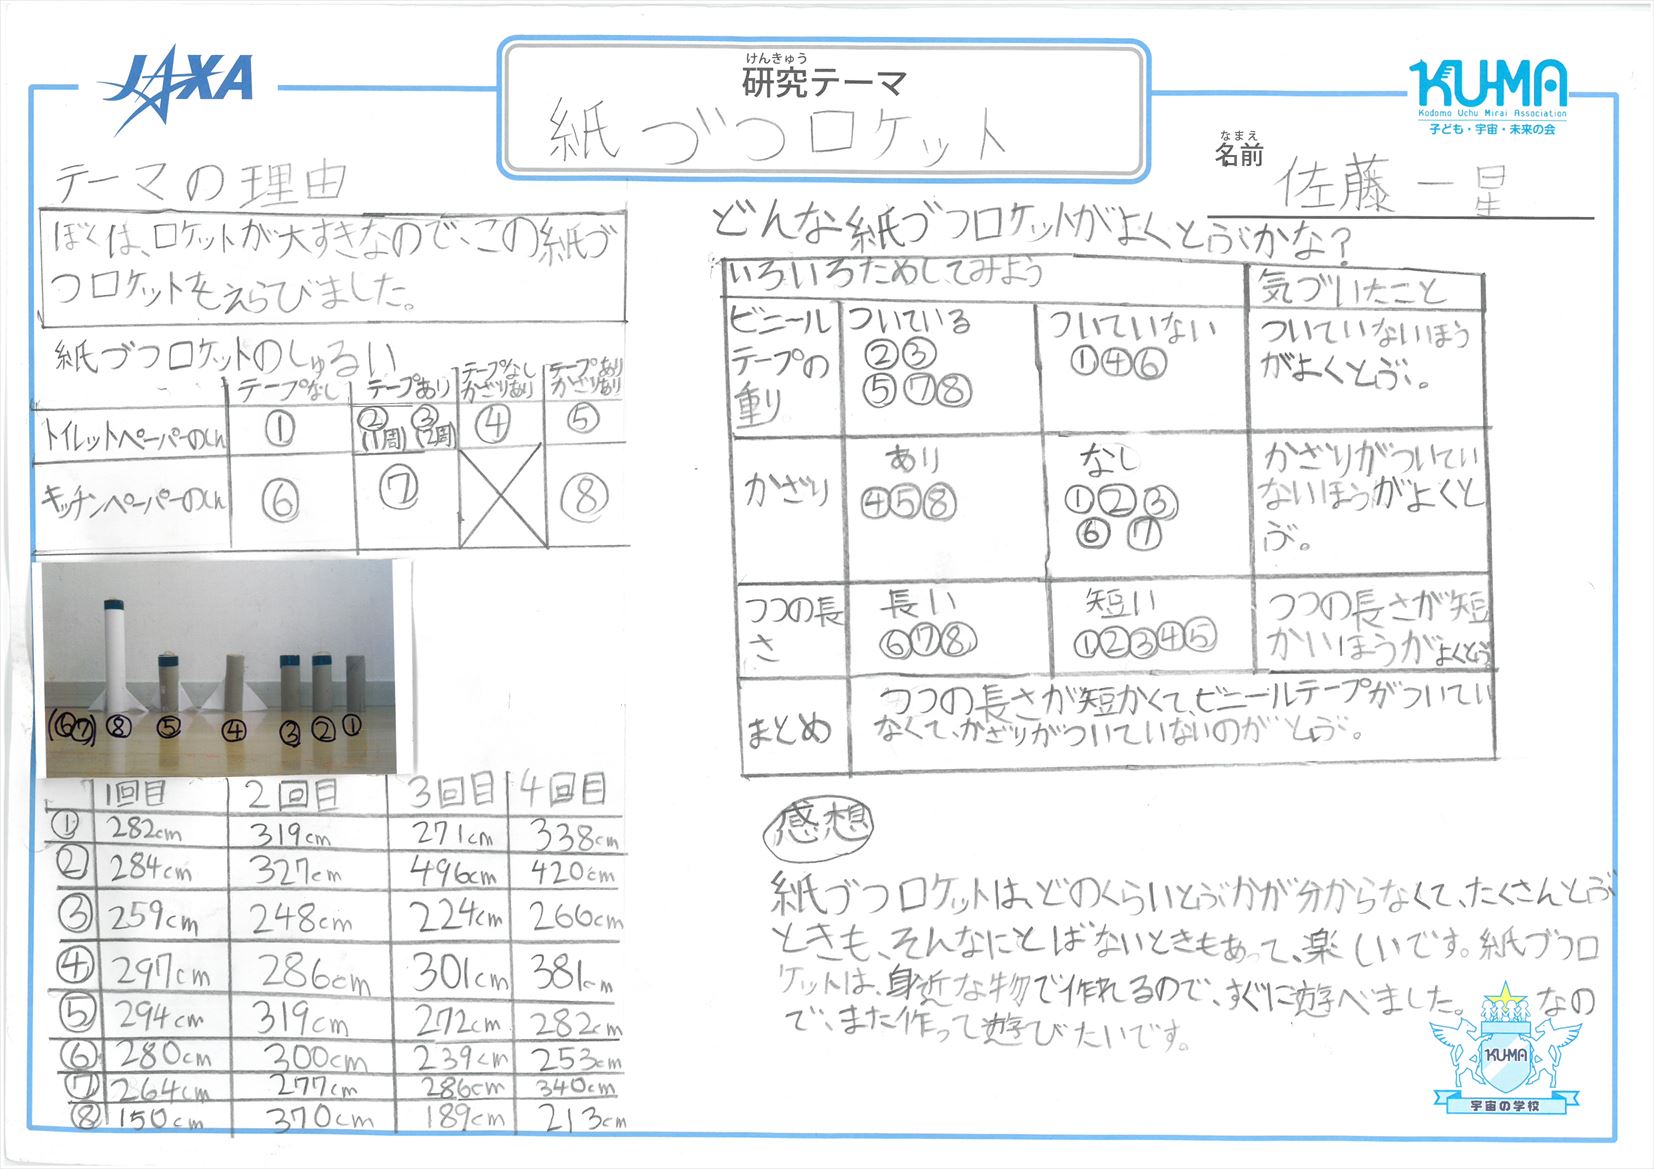 JAXA
けんきゅう
研究テーマ
紙づつロケット
KU-MA
Kodomo Uchu Mirai Association
子ども・宇宙・未来の会
なまえ
名前
佐藤 一星
テーマの理由
ぼくは、ロケットが大すきなので、この紙づ
つロケットをえらびました。
紙づつロケットのしゅるい
テープなし テープあり テープなしかざりあり テープありかざりあり
トイレットペーパーのしん ① ②(1周) ③(2周) ④ ⑤
キッチンペーパーのしん ⑥ ⑦ ⑧
(⑥⑦) ⑧ ⑤ ④ ③ ② ①
1回目 2回目 3回目 4回目
① 282cm 319cm 271cm 338cm
② 284cm 327cm 496cm 420cm
③ 259cm 248cm 224cm 266cm
④ 297cm 286cm 301cm 381cm
⑤ 294cm 319cm 272cm 282cm
⑥ 280cm 300cm 239cm 253cm
⑦ 264cm 277cm 286cm 340cm
⑧ 150cm 370cm 189cm 213cm
どんな紙づつロケットがよくとぶかな？
いろいろためしてみよう 気づいたこと
ビニール
テープの
重り
ついている
②③
⑤⑦⑧
ついていない
①④⑥
ついていないほう
がよくとぶ。
かざり
あり
④⑤⑧
なし
①②③
⑥⑦
かざりがついてい
ないほうがよくと
ぶ。
つつの長
さ
長い
⑥⑦⑧
短い
①②③④⑤
つつの長さが短
かいほうがよくとぶ
まとめ
つつの長さが短かくて、ビニールテープがついてい
なくて、かざりがついていないのがとぶ。
感想
紙づつロケットは、どのくらいとぶかが分からなくて、たくさんとぶ
ときも、そんなにとばないときもあって、楽しいです。紙づつロ
ケットは、身近な物で作れるので、すぐに遊べました。なの
で、また作って遊びたいです。
KU-MA
宇宙の学校